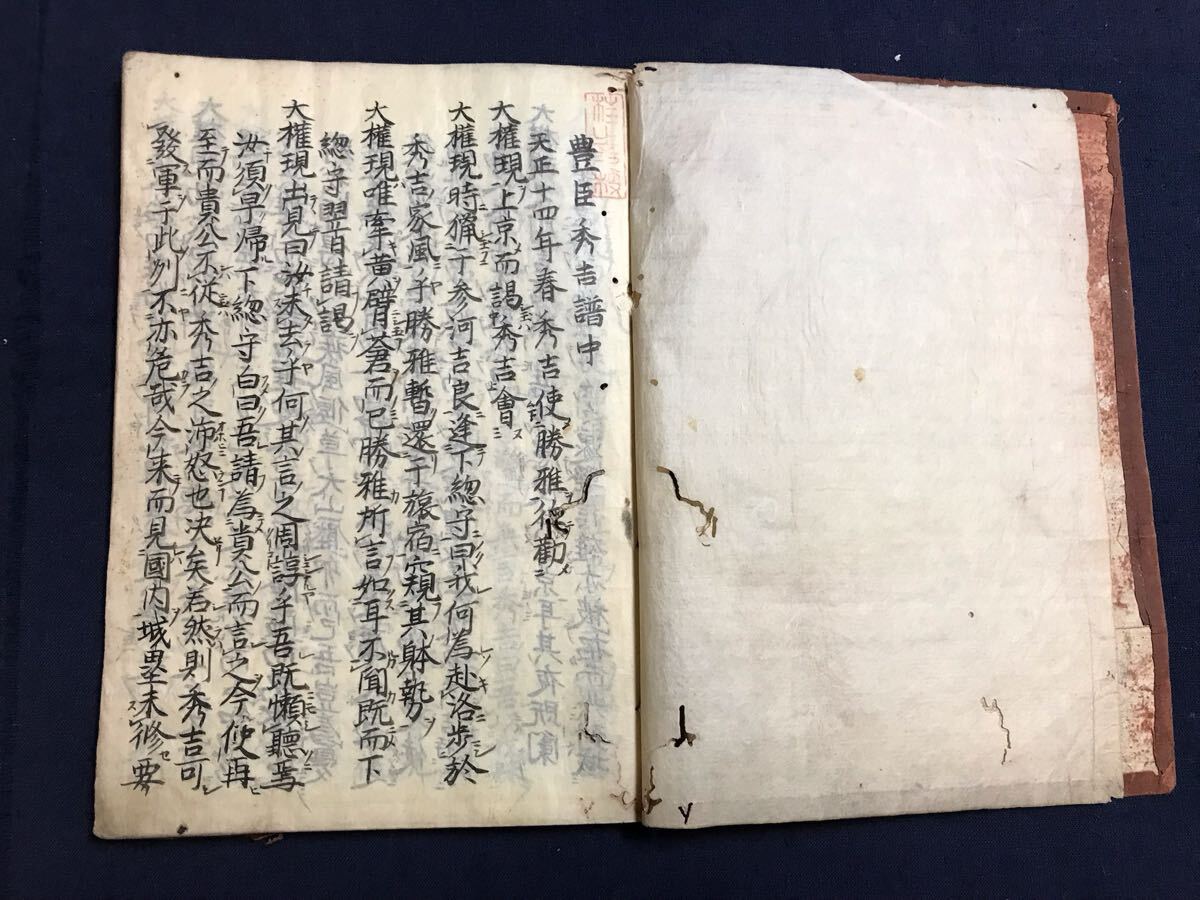 豊臣秀吉譜中
天正十四年春秀吉使勝雅徃勸
大權現上京而謁秀吉會
大權現時獵于参河吉良逢下総守曰我何為赴洛歩於
秀吉家風乎勝雅暫還于旅宿窺其躰勢
大權現唯牽黄臂蒼而已勝雅所言如耳不聞既而下
総守翌日請謁
大權現出見曰汝未去乎何其言之周諄乎吾既懶聽焉
汝須早歸下総守白曰吾請為貴公而言之今使再
至而貴公不從秀吉之沛怒也决矣若然則秀吉可
發軍于此列不亦危哉今来而見國内城塁未修要